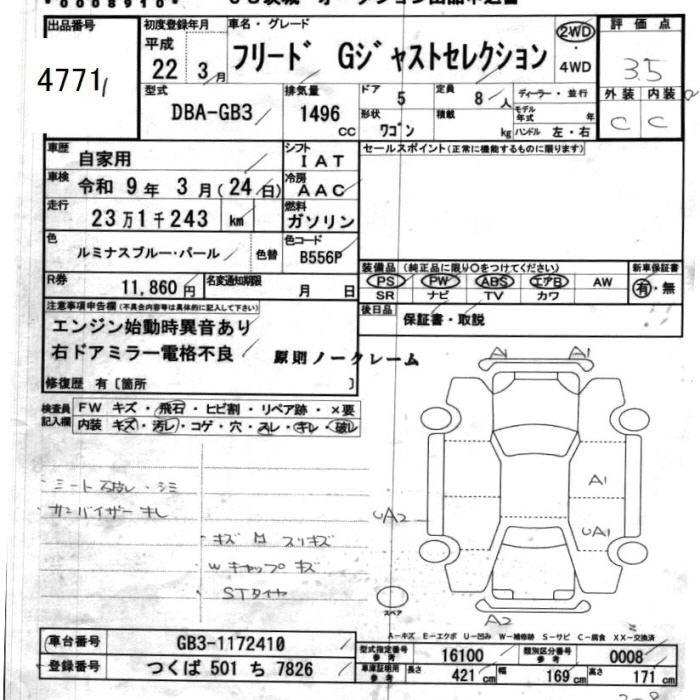 *0008910*
出品番号 初度登録年月 車名・グレード 評価点
4771 平成 22年 3月 フリード Gジャストセレクション 2WD・4WD 3.5
型式 排気量 ドア 定員 ディーラー・並行 外装 内装
DBA-GB3 1496 CC 5 8人 モデル年式 年 C C
形状 積載 ワゴン kg ハンドル 左・右
車歴 自家用 シフト IAT セールスポイント(正常に機能するものに限ります)
車検 令和 9年 3月(24日) 冷房 AAC
走行 23万1千243 km 燃料 ガソリン
色 ルミナスブルー・パール 色替 色コード B556P
装備品 (純正品に限り○をつけてください) 新車保証書
R券 11,860円 名変通知期限 月 日 PS PW ABS エアB AW 有・無
SR ナビ TV カワ
注意事項申告欄(不具合内容等は具体的に記入して下さい) 後日品 保証書・取説
エンジン始動時異音あり
右ドアミラー電格不良 原則ノークレーム
修復歴 有〔箇所 〕
A1 A1
検査員記入欄 FW キズ・飛石・ヒビ割・リペア跡・×要
内装 キズ・汚レ・コゲ・穴・スレ・キレ・破レ
シート破レ・シミ A1
サンバイザーキレ UA2 UA1
・キズ 凹 スリキズ
Wキャップ キズ
STタイヤ スペア
A2
A-キズ E-エクボ U-凹み W-補修跡 S-サビ C-腐食 XX-交換済
車台番号 GB3-1172410 型式指定番号 参考 16100 類別区分番号 参考 0008
登録番号 つくば 501 ち 7826 車庫証明用 参考 長さ 421cm 幅 169cm 高さ 171cm